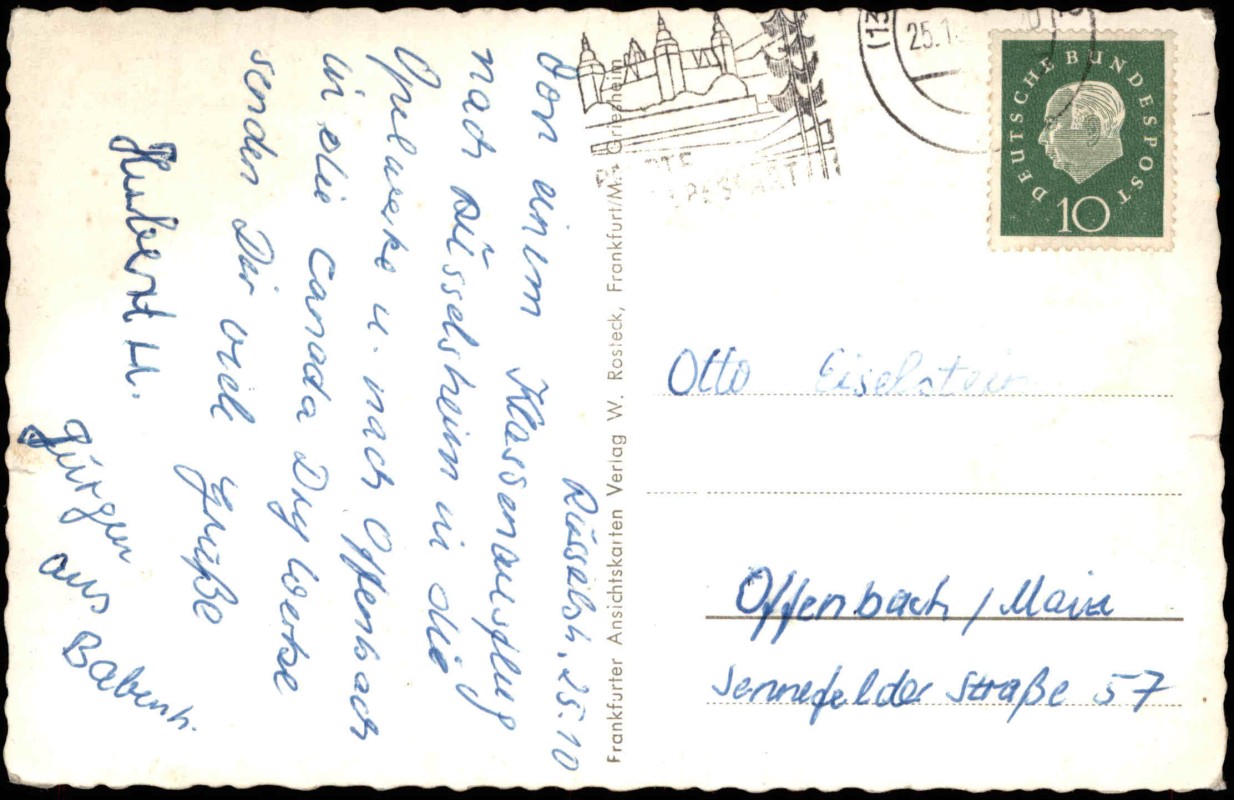 Rüsselsh, 25.10
Von einem Klassenausflug
nach Rüsselsheim in die
Opelwerke u. nach Offenbach
in die Canada Dry Werke
senden Dir viele Grüße
Hubert H.
Jürgen
aus Babenh.
Frankfurter Ansichtskarten Verlag W. Rosteck, Frankfurt/M.- Griesheim
(13
25.1
DEUTSCHE BUNDESPOST
10
Otto Eiselstein
Offenbach / Main
Sennefelder Straße 57